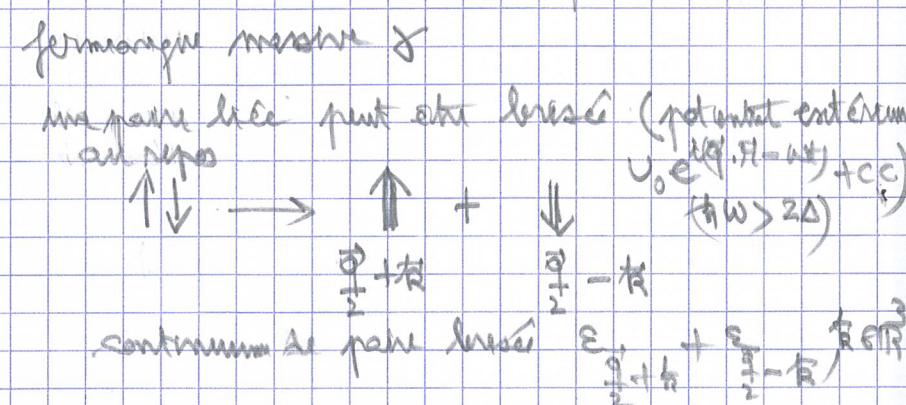 fermionique massive γ
une paire liée peut être brisée (potentiel extérieur
au repos U₀ e^{i(q⃗.r⃗ - ωt)} + c.c)
↑↓ → ⇑ + ⇓ (ħω > 2Δ)
q⃗/2 + k⃗ q⃗/2 - k⃗
continuum de paire brisée ε_{q⃗/2 + k⃗} + ε_{q⃗/2 - k⃗}, k⃗ ∈ ℝ³